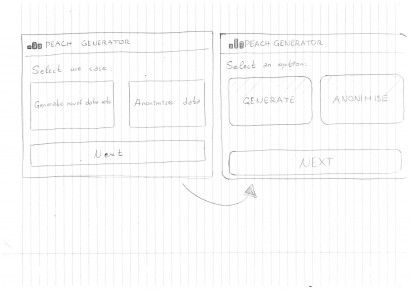 PEACH GENERATOR
Select use case:
Generate novel data sets
Anonimise data
Next
PEACH GENERATOR
Select an option:
GENERATE
ANONIMISE
NEXT